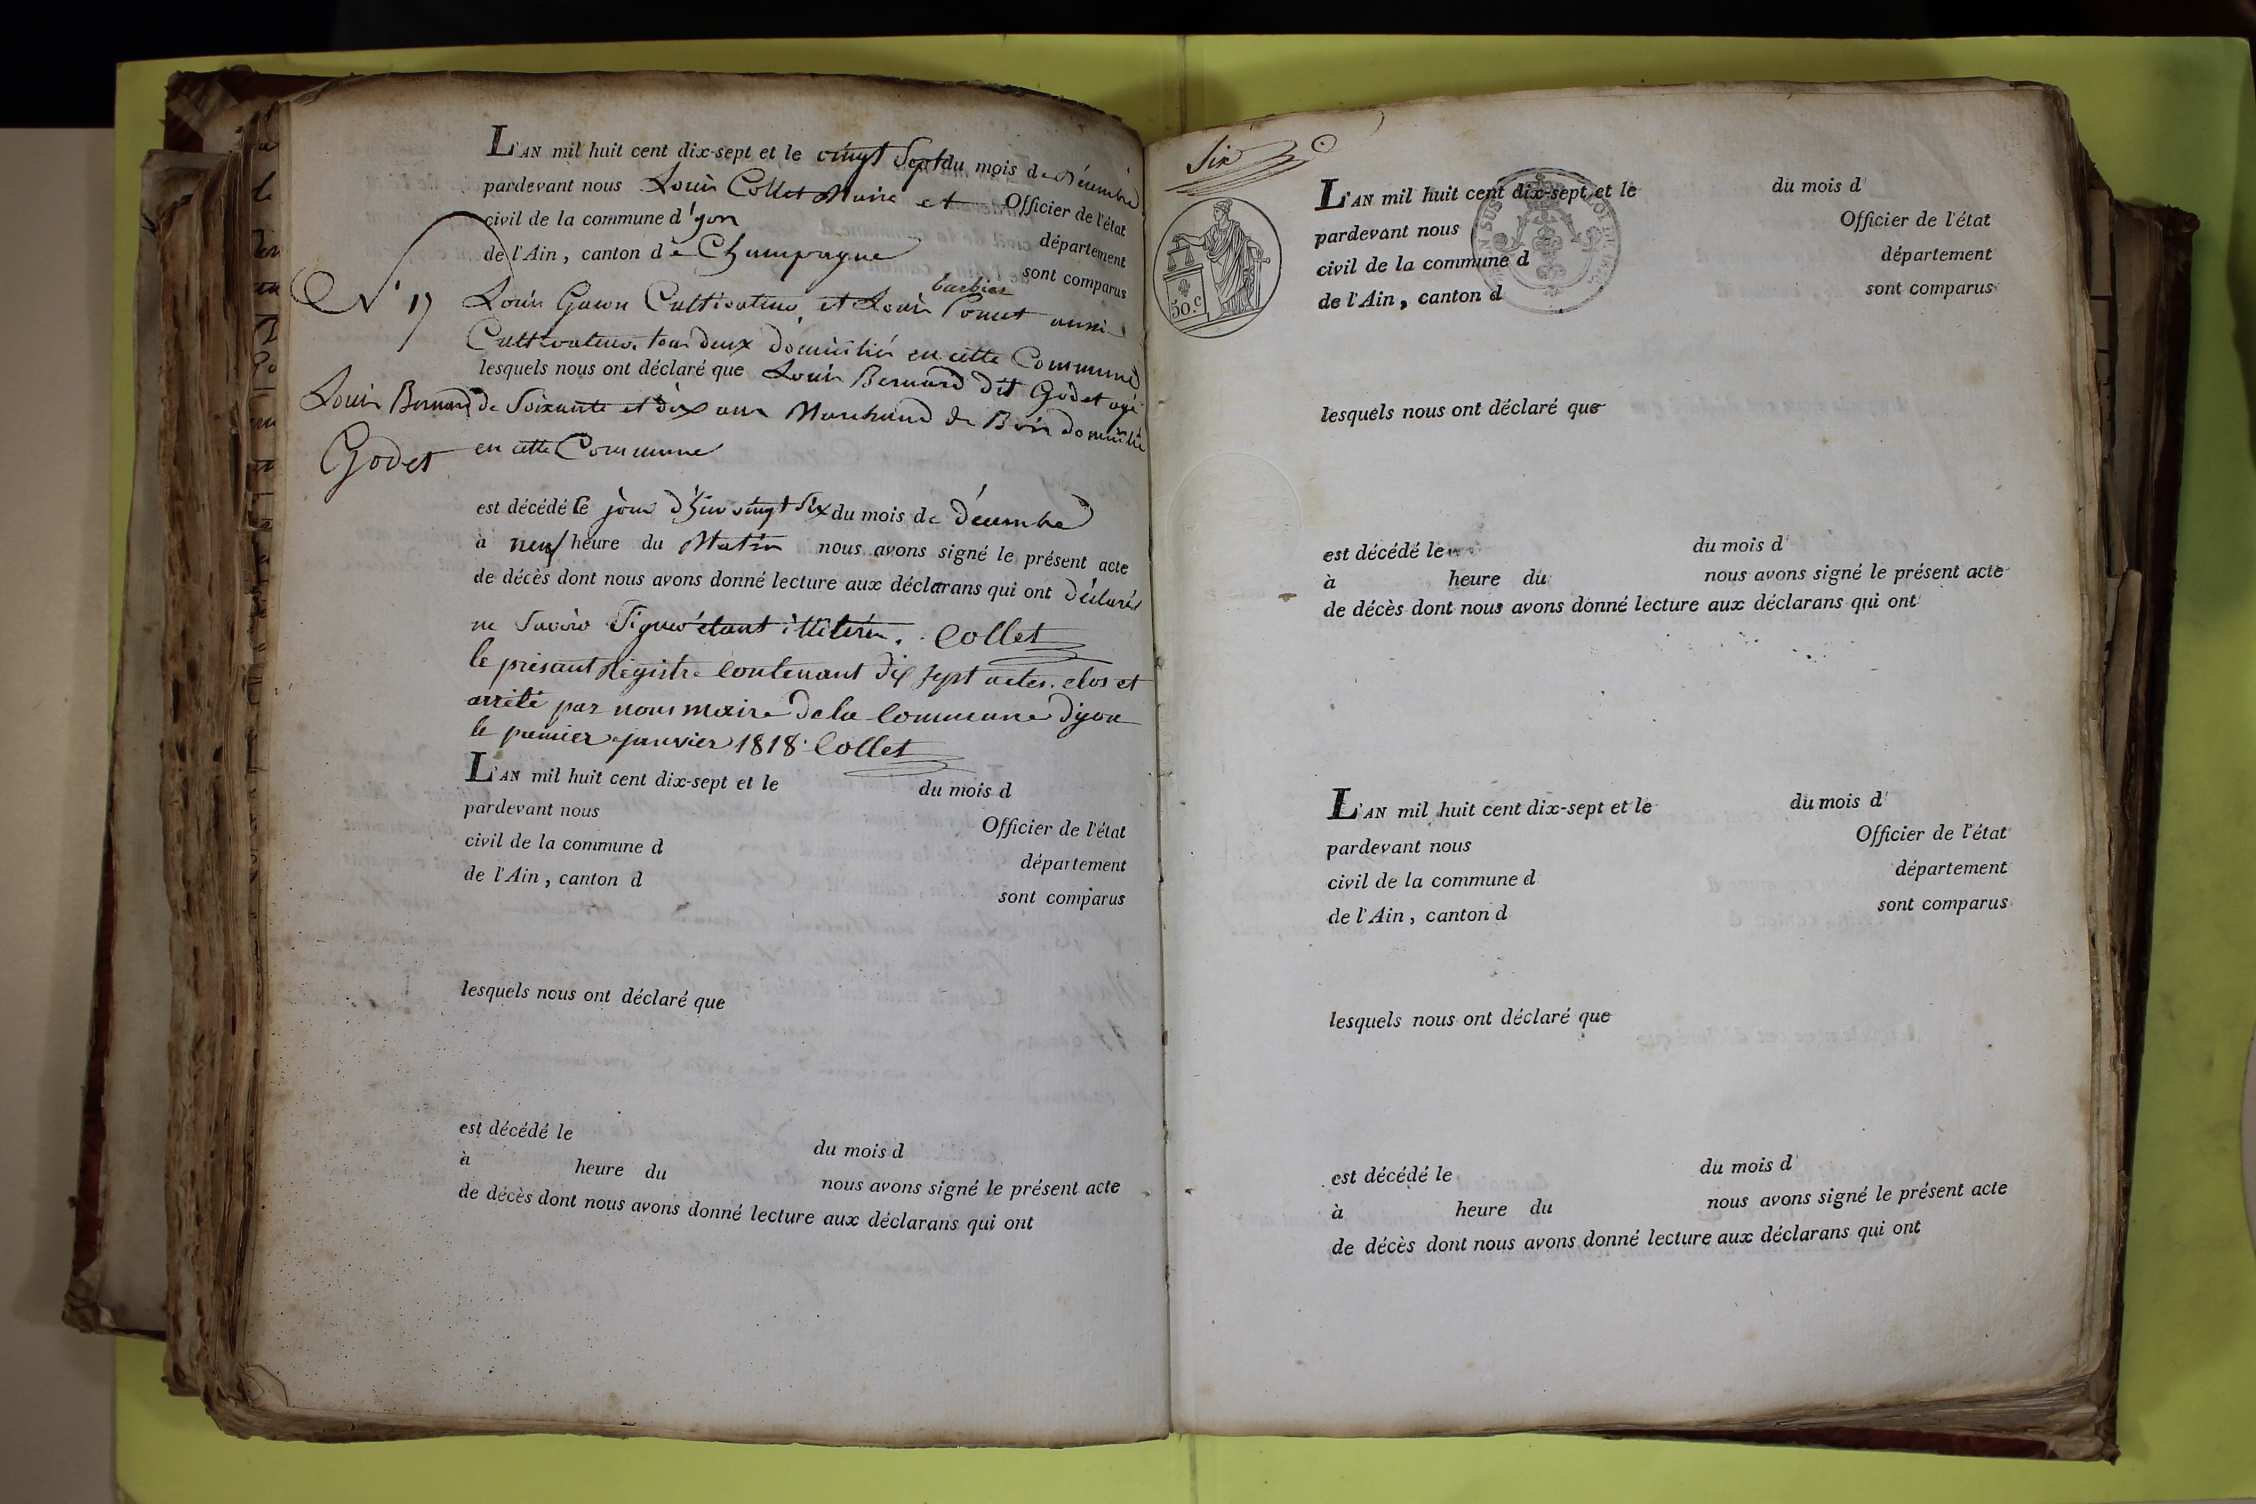 L'AN mil huit cent dix-sept et le vingt Sept du mois de Décembre
pardevant nous Louis Collet Maire et Officier de l'état
civil de la commune d'yon département
de l'Ain, canton de Champagne sont comparus
N° 17
barbier
Louis Gawn Cultivateur, et Louis Pomet aussi
Cultivateur tous deux domiciliés en cette Commune
lesquels nous ont déclaré que Louis Bernard dit Godet agé
Louis Bernard
de Soixante et dix ans Marchand de Bois domicilié
Godet
en cette Commune
est décédé le jour d'hier vingt Six du mois de décembre
à neuf heure du Matin nous avons signé le présent acte
de décès dont nous avons donné lecture aux déclarans qui ont déclarés
ne Savoir Signer étant illitérés. Collet
le présant Régistre Contenant dix sept actes. clos et
arrêté par nous maire de la Commune d'yon
le premier janvier 1818. Collet
L'AN mil huit cent dix-sept et le du mois d
pardevant nous Officier de l'état
civil de la commune d département
de l'Ain, canton d sont comparus
lesquels nous ont déclaré que
est décédé le du mois d
à heure du nous avons signé le présent acte
de décès dont nous avons donné lecture aux déclarans qui ont
Six
50.c
L'AN mil huit cent dix-sept et le du mois d
pardevant nous Officier de l'état
civil de la commune d département
de l'Ain, canton d sont comparus
lesquels nous ont déclaré que
est décédé le du mois d
à heure du nous avons signé le présent acte
de décès dont nous avons donné lecture aux déclarans qui ont
L'AN mil huit cent dix-sept et le du mois d
pardevant nous Officier de l'état
civil de la commune d département
de l'Ain, canton d sont comparus
lesquels nous ont déclaré que
est décédé le du mois d
à heure du nous avons signé le présent acte
de décès dont nous avons donné lecture aux déclarans qui ont